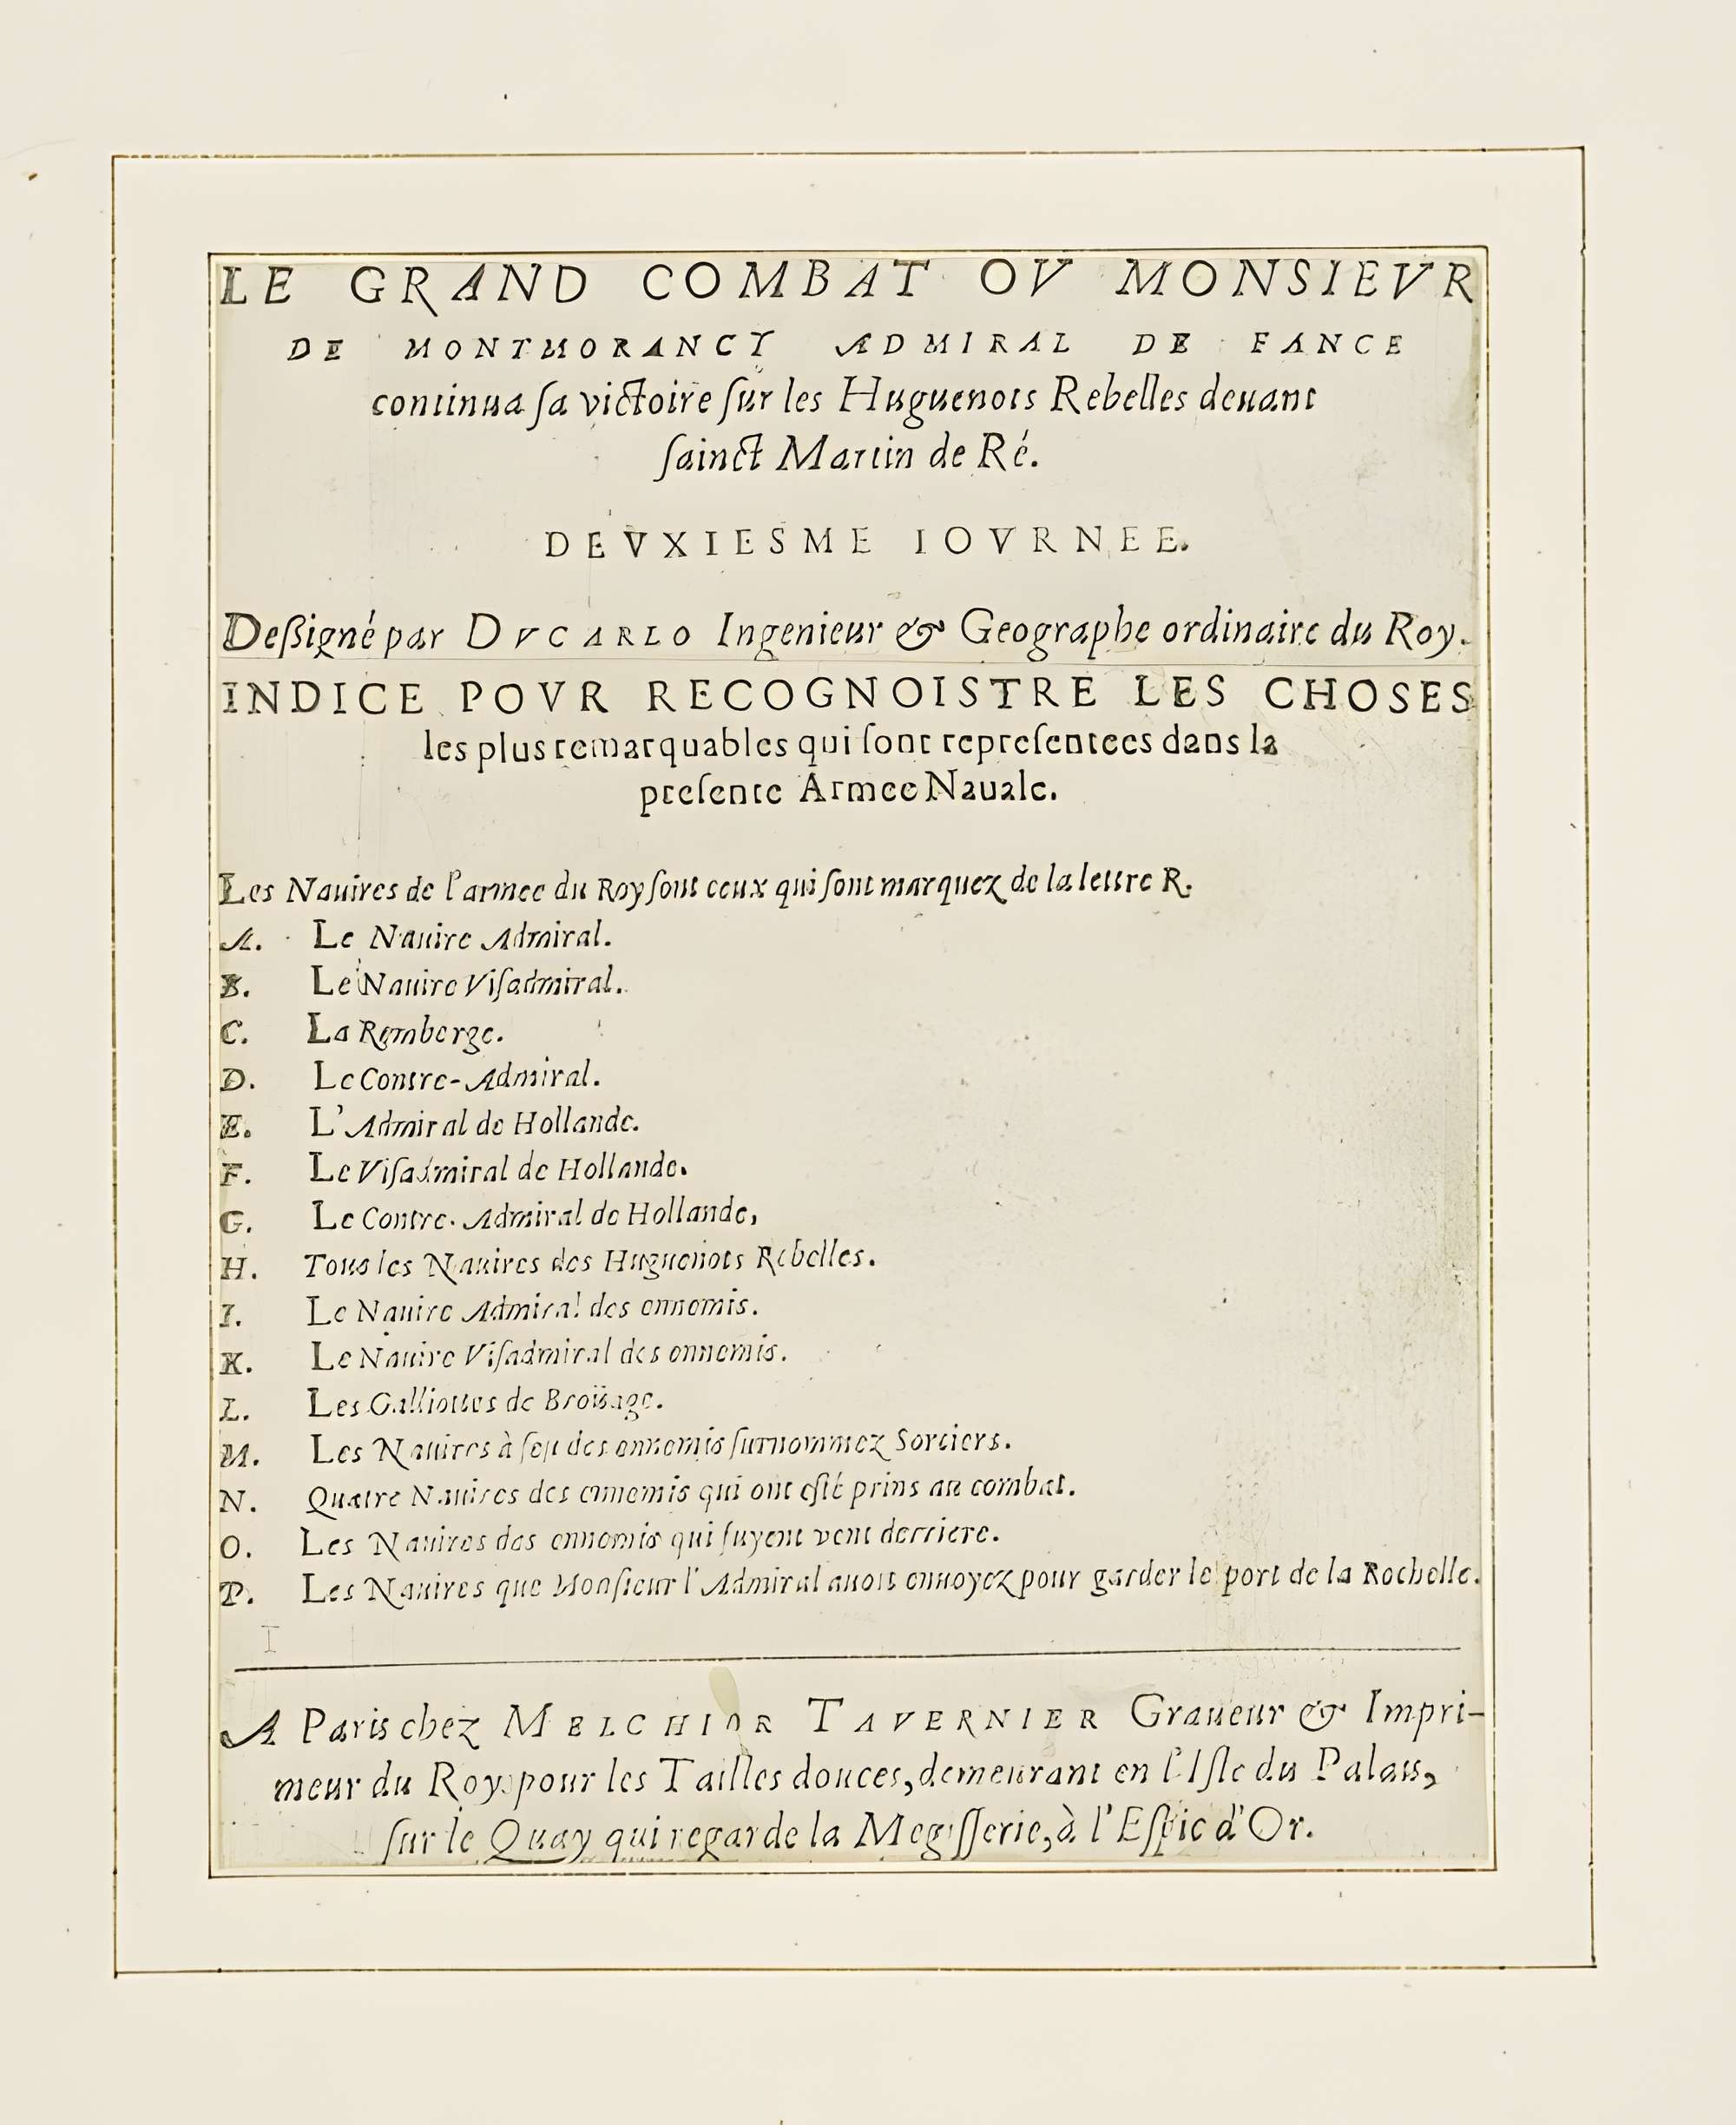 LE GRAND COMBAT OV MONSIEVR
DE MONTMORANCY ADMIRAL DE FANCE
continua ſa victoire ſur les Huguenots Rebelles deuant
ſainct Martin de Ré.
DEVXIESME IOVRNEE.
Deßigné par DVCARLO Ingenieur & Geographe ordinaire du Roy.
INDICE POVR RECOGNOISTRE LES CHOSES
les plus remarquables qui ſont repreſentees dans la
preſente Armee Nauale.
Les Nauires de l'armee du Roy ſont ceux qui ſont marquez de la lettre R.
A. Le Nauire Admiral.
B. Le Nauire Viſadmiral.
C. La Ramberge.
D. Le Contre-Admiral.
E. L'Admiral de Hollande.
F. Le Viſadmiral de Hollande.
G. Le Contre-Admiral de Hollande,
H. Tous les Nauires des Huguenots Rebelles.
I. Le Nauire Admiral des ennemis.
K. Le Nauire Viſadmiral des ennemis.
L. Les Galliottes de Broüage.
M. Les Nauires à feu des ennemis ſurnommez Sorciers.
N. Quatre Nauires des ennemis qui ont eſté prins au combat.
O. Les Nauires des ennemis qui fuyent vent derriere.
P. Les Nauires que Monſieur l'Admiral auoit enuoyez pour garder le port de la Rochelle.
A Paris chez MELCHIOR TAVERNIER Graueur & Impri-
meur du Roy pour les Tailles douces, demeurant en l'Iſle du Palais,
ſur le Quay qui regarde la Megiſſerie, à l'Eſpic d'Or.